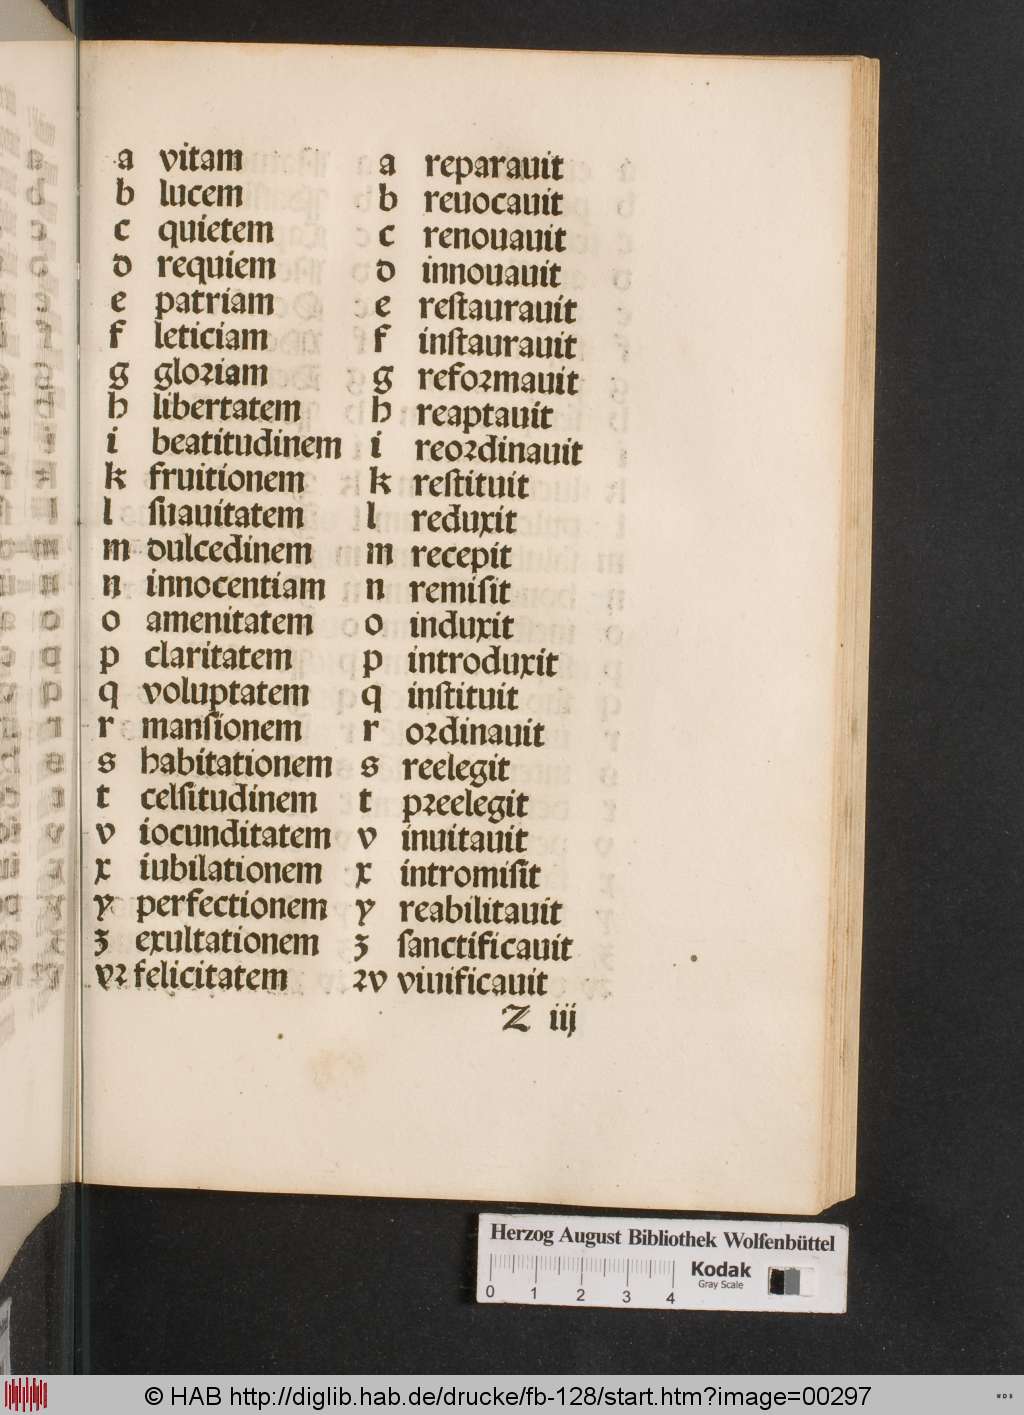 a vitam a reparauit
b lucem b reuocauit
c quietem c renouauit
d requiem d innouauit
e patriam e restaurauit
f leticiam f instaurauit
g gloriam g reformauit
h libertatem h reaptauit
i beatitudinem i reordinauit
k fruitionem k restituit
l suauitatem l reduxit
m dulcedinem m recepit
n innocentiam n remisit
o amenitatem o induxit
p claritatem p introduxit
q voluptatem q instituit
r mansionem r ordinauit
s habitationem s reelegit
t celsitudinem t preelegit
v iocunditatem v inuitauit
x iubilationem x intromisit
y perfectionem y reabilitauit
ʒ exultationem ʒ sanctificauit
vꝛ felicitatem ꝛv viuificauit
Z iij
Herzog August Bibliothek Wolfenbüttel
Kodak
Gray Scale
0 1 2 3 4
© HAB http://diglib.hab.de/drucke/fb-128/start.htm?image=00297